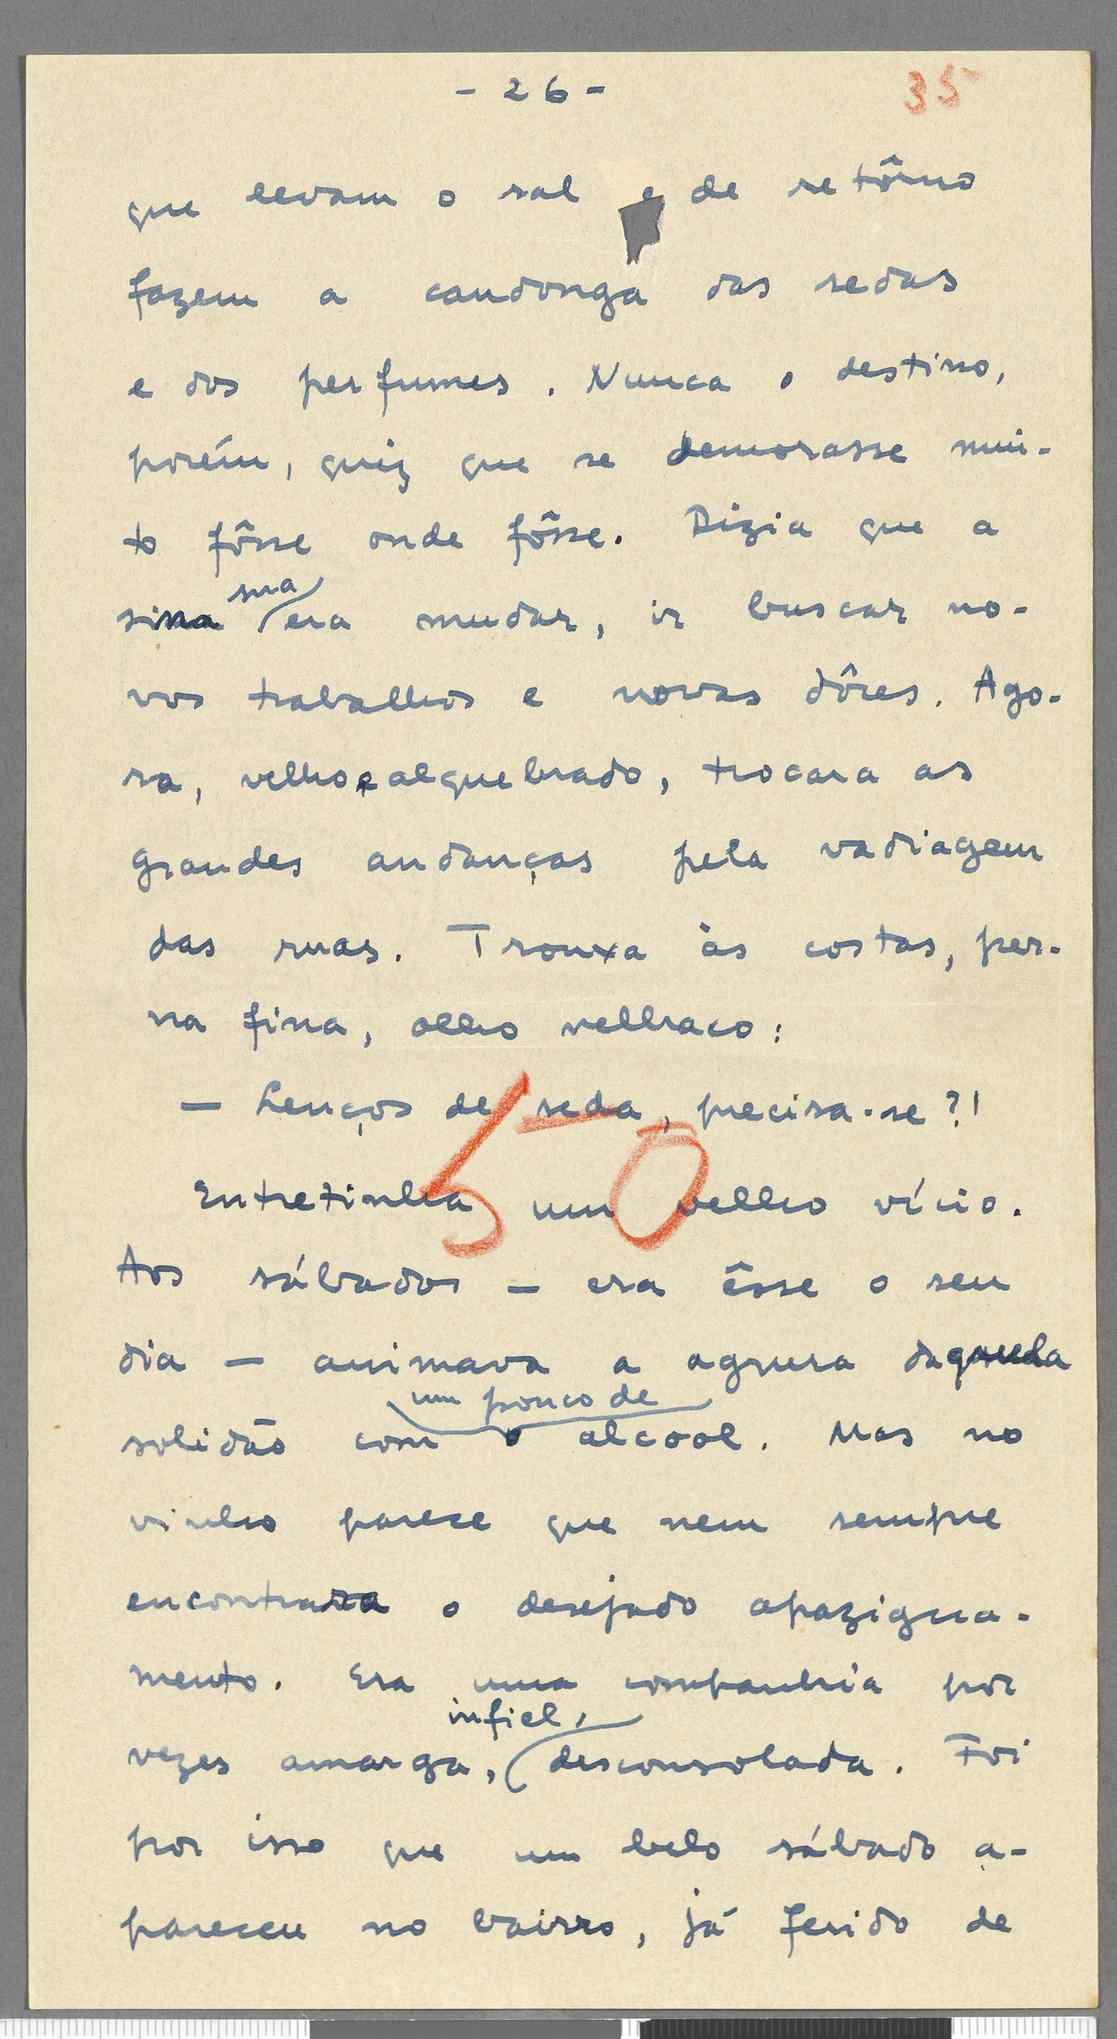 - 26 -
35
que levam o sal e de retôrno
fazem a candonga das sedas
e dos perfumes. Nunca o destino,
porém, quiz que se demorasse mui-
to fôsse onde fôsse. Dizia que a
sua
sina era mudar, ir buscar no-
vos trabalhos e novas dôres. Ago-
ra, velho e alquebrado, trocara as
grandes andanças pela vadiagem
das ruas. Trouxa às costas, per-
na fina, olho velhaco:
— Lenços de seda, precisa-se?!
50
Entretinha um velho vício.
Aos sábados — era êsse o seu
dia — animava a agrura daquela
um pouco de
solidão com o alcool. Mas no
vinho parece que nem sempre
encontrara o desejado apazigua-
mento. Era uma companhia por
infiel,
vezes amarga, desconsolada. Foi
por isso que um belo sábado a-
pareceu no bairro, já ferido de